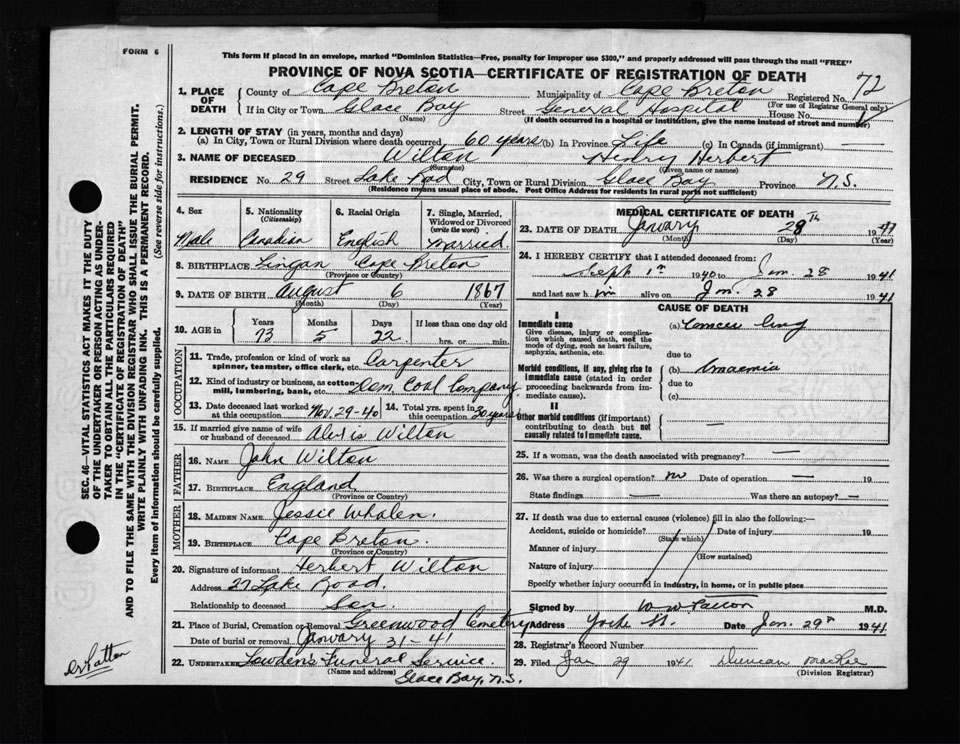 FORM 6
This form if placed in an envelope, marked "Dominion Statistics—Free, penalty for improper use $300," and properly addressed will pass through the mail "FREE"
PROVINCE OF NOVA SCOTIA—CERTIFICATE OF REGISTRATION OF DEATH
1. PLACE OF DEATH County of Cape Breton Municipality of Cape Breton Registered No. 72
(For use of Registrar General only)
If in City or Town Glace Bay Street General Hospital House No.
(Name) (If death occurred in a hospital or institution, give the name instead of street and number)
2. LENGTH OF STAY (in years, months and days)
(a) In City, Town or Rural Division where death occurred 60 years (b) In Province Life (c) In Canada (if immigrant) —
3. NAME OF DECEASED Wilton Henry Herbert
(Surname) (Given name or names)
RESIDENCE No. 29 Street Lake Road City, Town or Rural Division Glace Bay Province N.S.
(Residence means usual place of abode. Post Office Address for residents in rural parts not sufficient)
4. Sex 5. Nationality (Citizenship) 6. Racial Origin 7. Single, Married, Widowed or Divorced (write the word)
Male Canadian English Married
8. BIRTHPLACE Lingan Cape Breton
(Province or Country)
9. DATE OF BIRTH August 6 1867
(Month) (Day) (Year)
10. AGE in Years Months Days If less than one day old
73 5 22 hrs. or min.
OCCUPATION
11. Trade, profession or kind of work as spinner, teamster, office clerk, etc. Carpenter
12. Kind of industry or business, as cotton-mill, lumbering, bank, etc. Dom Coal Company
13. Date deceased last worked at this occupation Nov. 29-40 14. Total yrs. spent in this occupation 30 years
15. If married give name of wife or husband of deceased Alexis Wilton
FATHER
16. NAME John Wilton
17. BIRTHPLACE England
(Province or Country)
MOTHER
18. MAIDEN NAME Jessie Whalen.
19. BIRTHPLACE Cape Breton.
(Province or Country)
20. Signature of informant Herbert Wilton
Address 27 Lake Road.
Relationship to deceased Son.
21. Place of Burial, Cremation or Removal Greenwood Cemetery
Date of burial or removal January 31-41
22. UNDERTAKER Lowden's Funeral Service.
(Name and address)
Glace Bay, N.S.
MEDICAL CERTIFICATE OF DEATH
23. DATE OF DEATH January 28th 1941
(Month) (Day) (Year)
24. I HEREBY CERTIFY that I attended deceased from
Sept 1st 1940 to Jan. 28 1941
and last saw him alive on Jan. 28 1941
CAUSE OF DEATH
I
Immediate cause (a)
Give disease, injury or complication which caused death, not the mode of dying, such as heart failure, asphyxia, asthenia, etc.
due to
Morbid conditions, if any, giving rise to immediate cause (stated in order proceeding backwards from immediate cause). (b)
due to
(c)
II
Other morbid conditions (if important) contributing to death but not causally related to immediate cause. —
25. If a woman, was the death associated with pregnancy? —
26. Was there a surgical operation? no Date of operation — 19
State findings — Was there an autopsy? —
27. If death was due to external causes (violence) fill in also the following:
Accident, suicide or homicide? Date of injury 19
(State which)
Manner of injury
(How sustained)
Nature of injury
Specify whether injury occurred in industry, in home, or in public place
Signed by W W Patton M.D.
Address Yorke St. Date Jan. 29th 1941
28. Registrar's Record Number
29. Filed Jan 29 1941 Duncan
(Division Registrar)
SEC. 46—VITAL STATISTICS ACT MAKES IT THE DUTY
OF THE UNDERTAKER OR PERSON ACTING AS UNDER-
TAKER TO OBTAIN ALL THE PARTICULARS REQUIRED
IN THE "CERTIFICATE OF REGISTRATION OF DEATH"
AND TO FILE THE SAME WITH THE DIVISION REGISTRAR WHO SHALL ISSUE THE BURIAL PERMIT.
WRITE PLAINLY WITH UNFADING INK. THIS IS A PERMANENT RECORD.
Every item of Information should be carefully supplied. (See reverse side for instructions.)
Patton